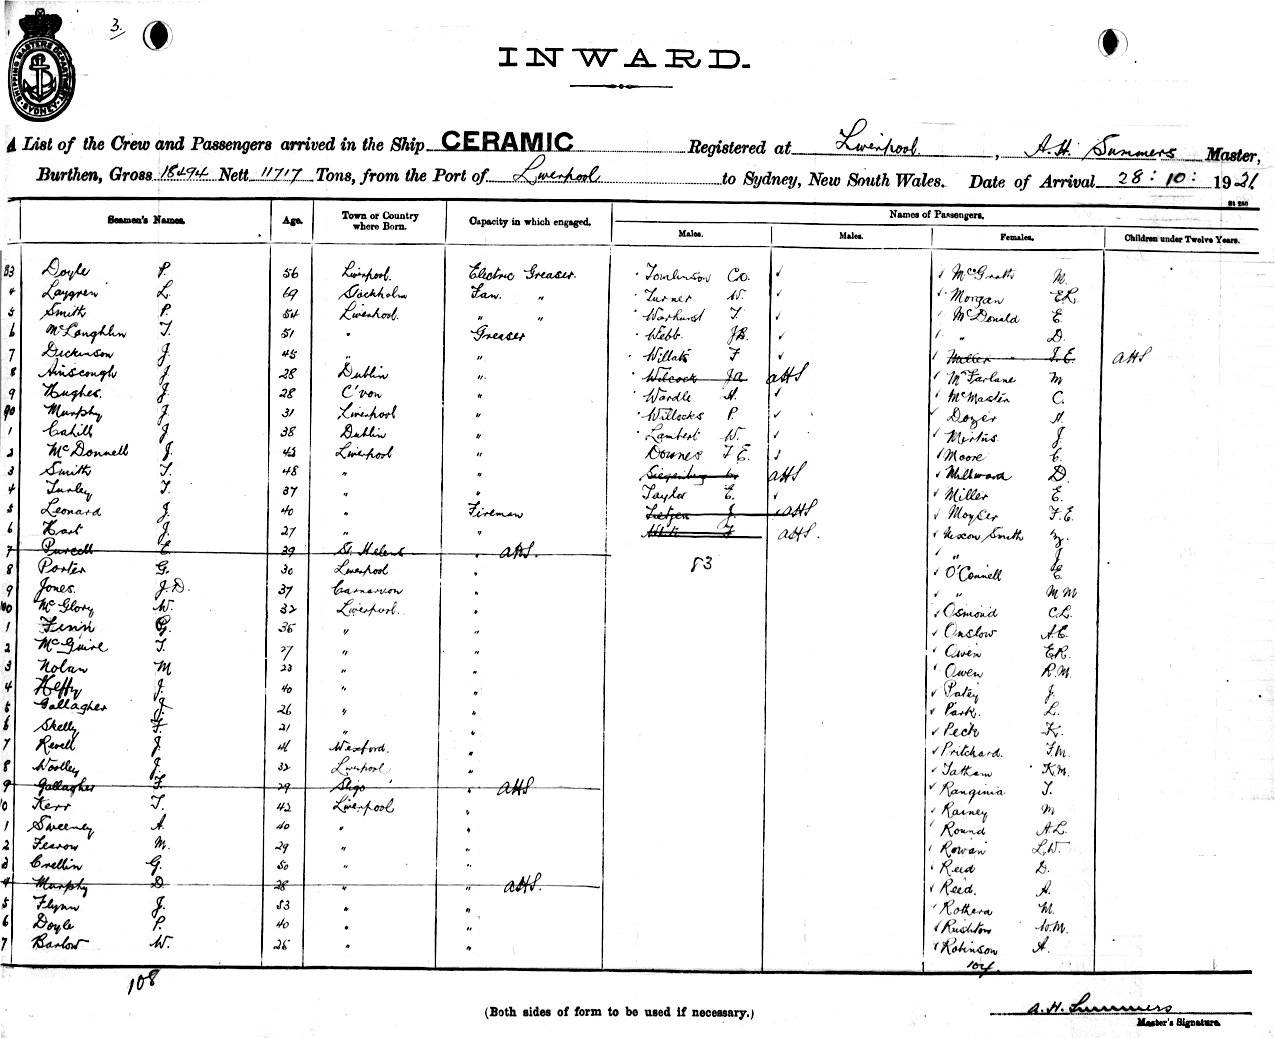 3.
SHIPPING MASTERS DEPARTMENT
SYDNEY
INWARD.
A List of the Crew and Passengers arrived in the Ship CERAMIC Registered at Liverpool, A.H. Summers Master,
Burthen, Gross 18494 Nett 11717 Tons, from the Port of Liverpool to Sydney, New South Wales. Date of Arrival 28 : 10 : 1921
Names of Passengers.
Seamen's Names. Age. Town or Country where Born. Capacity in which engaged. Males. Males. Females. Children under Twelve Years.
83 Doyle P. 56 Liverpool. Electric Greaser. Tomlinson Co. McGrath M.
4 L. 69 Stockholm Fan. " Turner W. Morgan E.R.
5 Smith P. 54 Liverpool. " " Warhurst T. McDonald E.
6 McLoughlin T. 51 " Greaser Webb JB. " D.
7 Dickinson J. 45 " " Willats F AHS
8 Ainscough J. 28 Dublin " Wilcock JA AHS McFarlane M
9 Hughes. J. 28 C'von " Wardle A. McMaster C.
90 Murphy J. 31 Liverpool " Willocks P. Dozer A.
1 Cahill J 38 Dublin " Lambert W. J.
2 McDonnell J. 43 Liverpool " Downes F E. Moore E.
3 Smith T. 48 " " AHS Millward D.
4 Turley T. 37 " " Taylor E. Miller E.
5 Leonard J. 40 " Fireman J AHS Moyser F.E.
6 Hart J 27 " " AHS. Nixon Smith
7 Purcell E 39 St. Helens " AHS. " J
8 Porter G. 30 Liverpool " 83 O'Connell E
9 Jones. J.D. 37 Carnarvon " " M M
100 McGlory W. 32 Liverpool. " Osmond C.L.
1 Finn G. 36 " " Onslow A.E.
2 McGuire T. 27 " " Owen E.R.
3 Nolan M 23 " " Owen R.M.
4 Heffy J. 40 " " Patey J.
5 Gallagher J. 26 " " Park. L.
6 Skelly F. 21 " " Peck K.
7 Revell J. 41 Wexford. " Pritchard. F.M.
8 Woolley J. 32 Liverpool " Tatham K.M.
9 Gallagher F. 29 Sligo " AHS Ranginia T.
10 Kerr T. 42 Liverpool " Rainey M
1 Sweeney A. 40 " " Round A.L.
2 Fearon M. 29 " " Rowan L.W.
3 Crellin G. 50 " " Reid D.
4 Murphy D. 28 " " AHS. Reid. A.
5 Flynn J. 53 " " Rothera M.
6 Doyle P. 40 " " Rushton W.M.
7 Barlow W. 26 " " Robinson A.
108 104.
(Both sides of form to be used if necessary.)
A.H. Summers
Master's Signature.